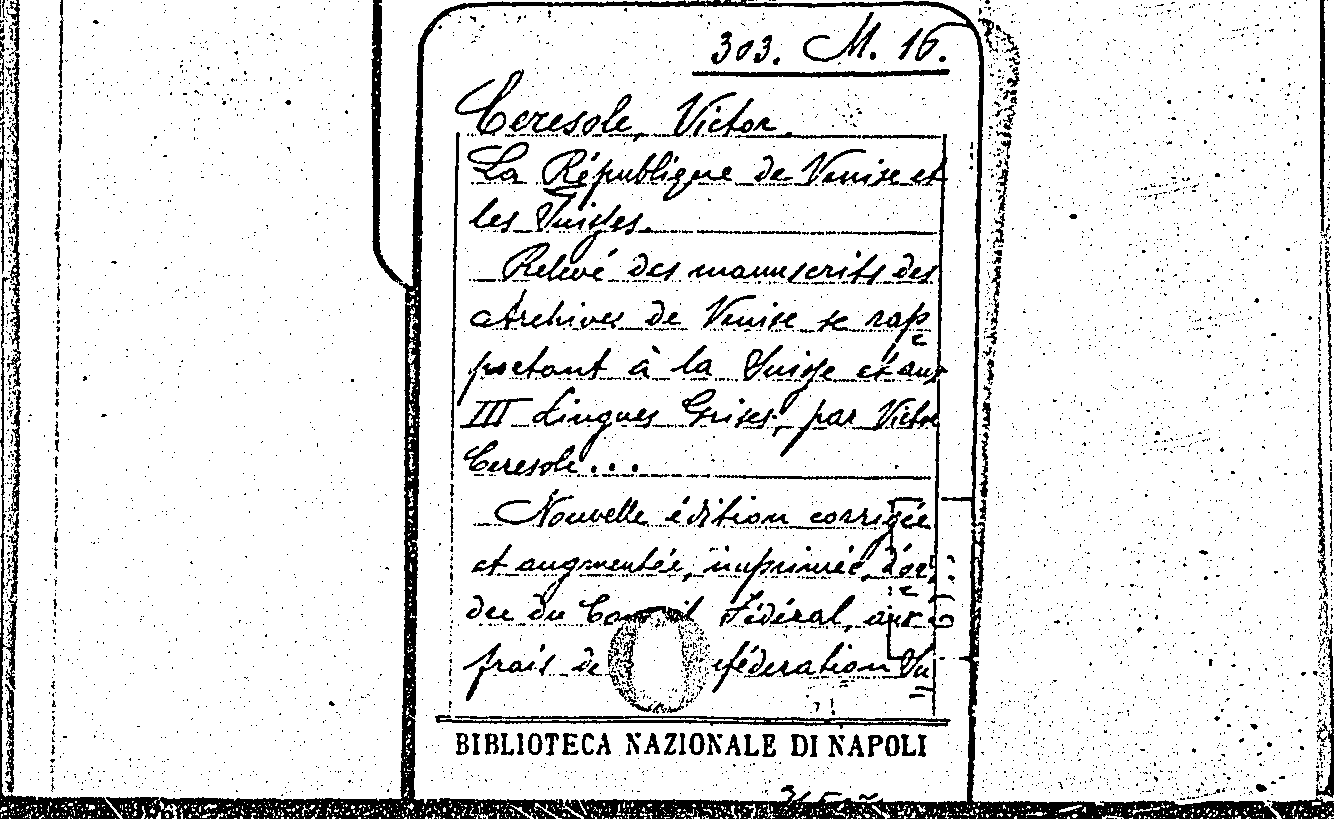 303. M. 16.
Ceresole, Victor.
La République de Venise et
les Suisses.
Relevé des manuscrits des
Archives de Venise se rap
portant à la Suisse et aux
III Lingues Grises, par Victor
Ceresole...
Nouvelle édition corrigée
et augmentée, imprimée, d'or
dre du Conseil Fédéral, aux
frais de
fédération Su
BIBLIOTECA NAZIONALE DI NAPOLI